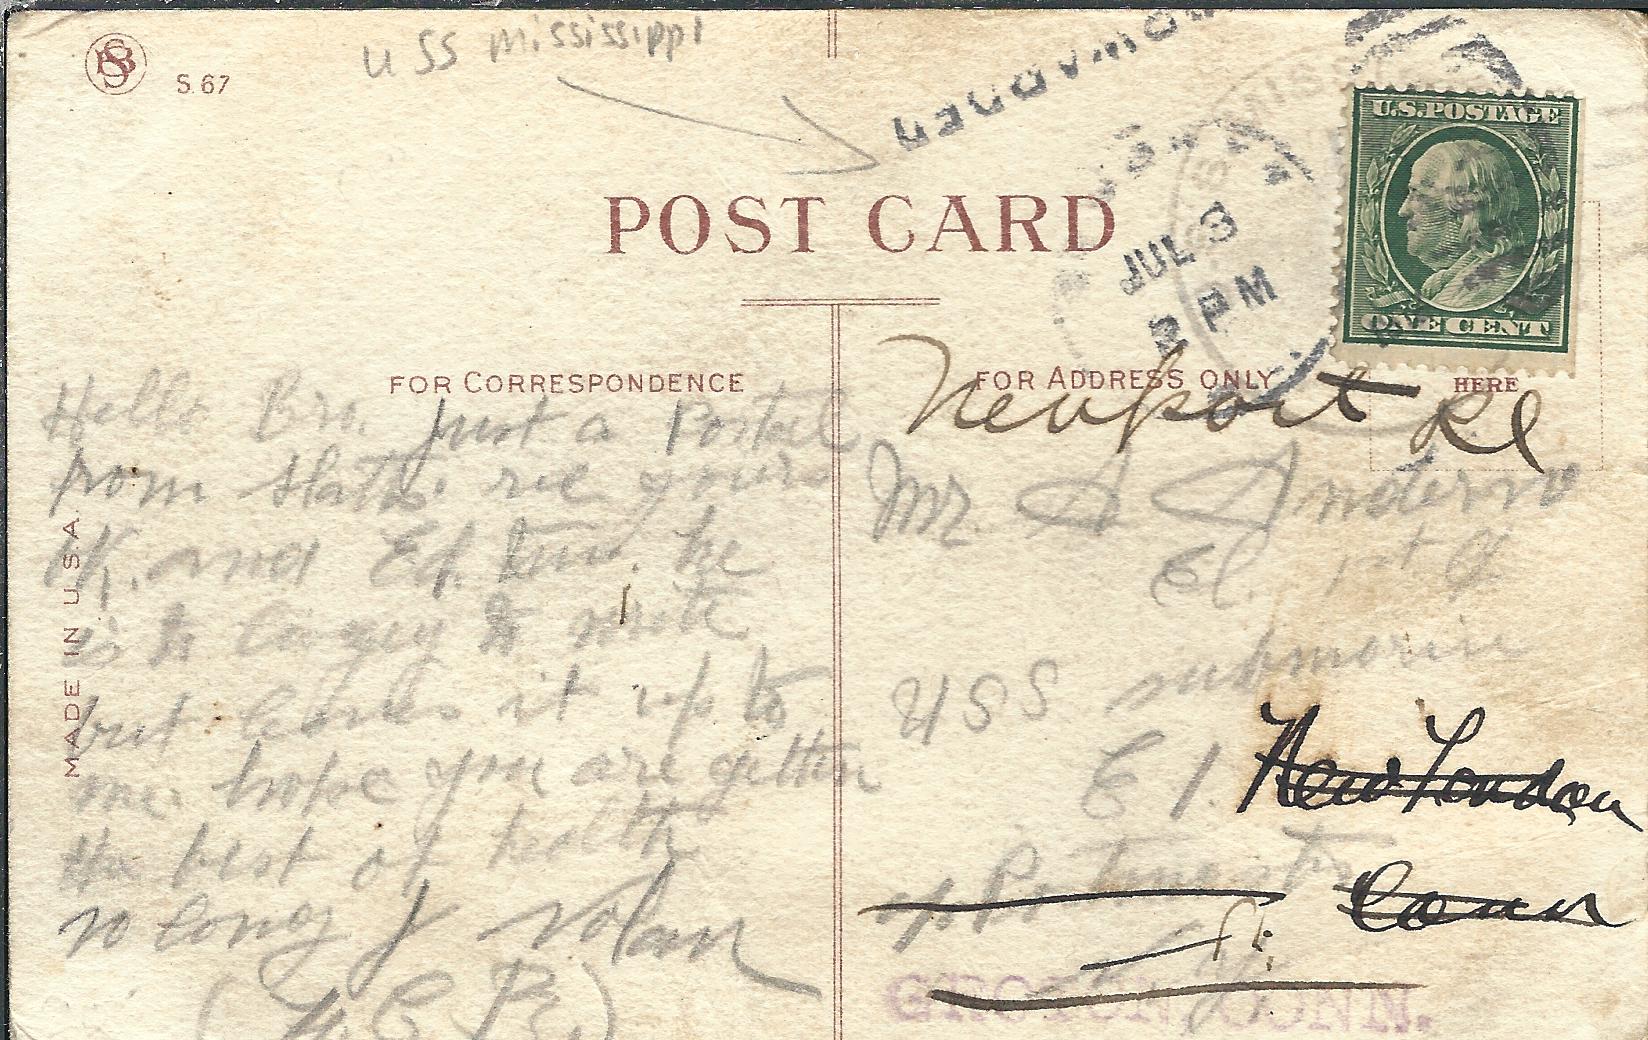 USS Mississippi
S. 67
U.S. POSTAGE
ONE CENT
POST CARD
JUL 3
PM
FOR CORRESPONDENCE
FOR ADDRESS ONLY
HERE
MADE IN U.S.A.
Hello Bro. Just a Postal
from rec yours
OK. and Ed. he
is to lazey to write
but leaves it up to
me. hope you are gettin
the best of health
so long J Nolan
Newport RI
Mr.
El. 1st
USS submarine
E 1. New London
c/o Conn
GROTON, CONN.